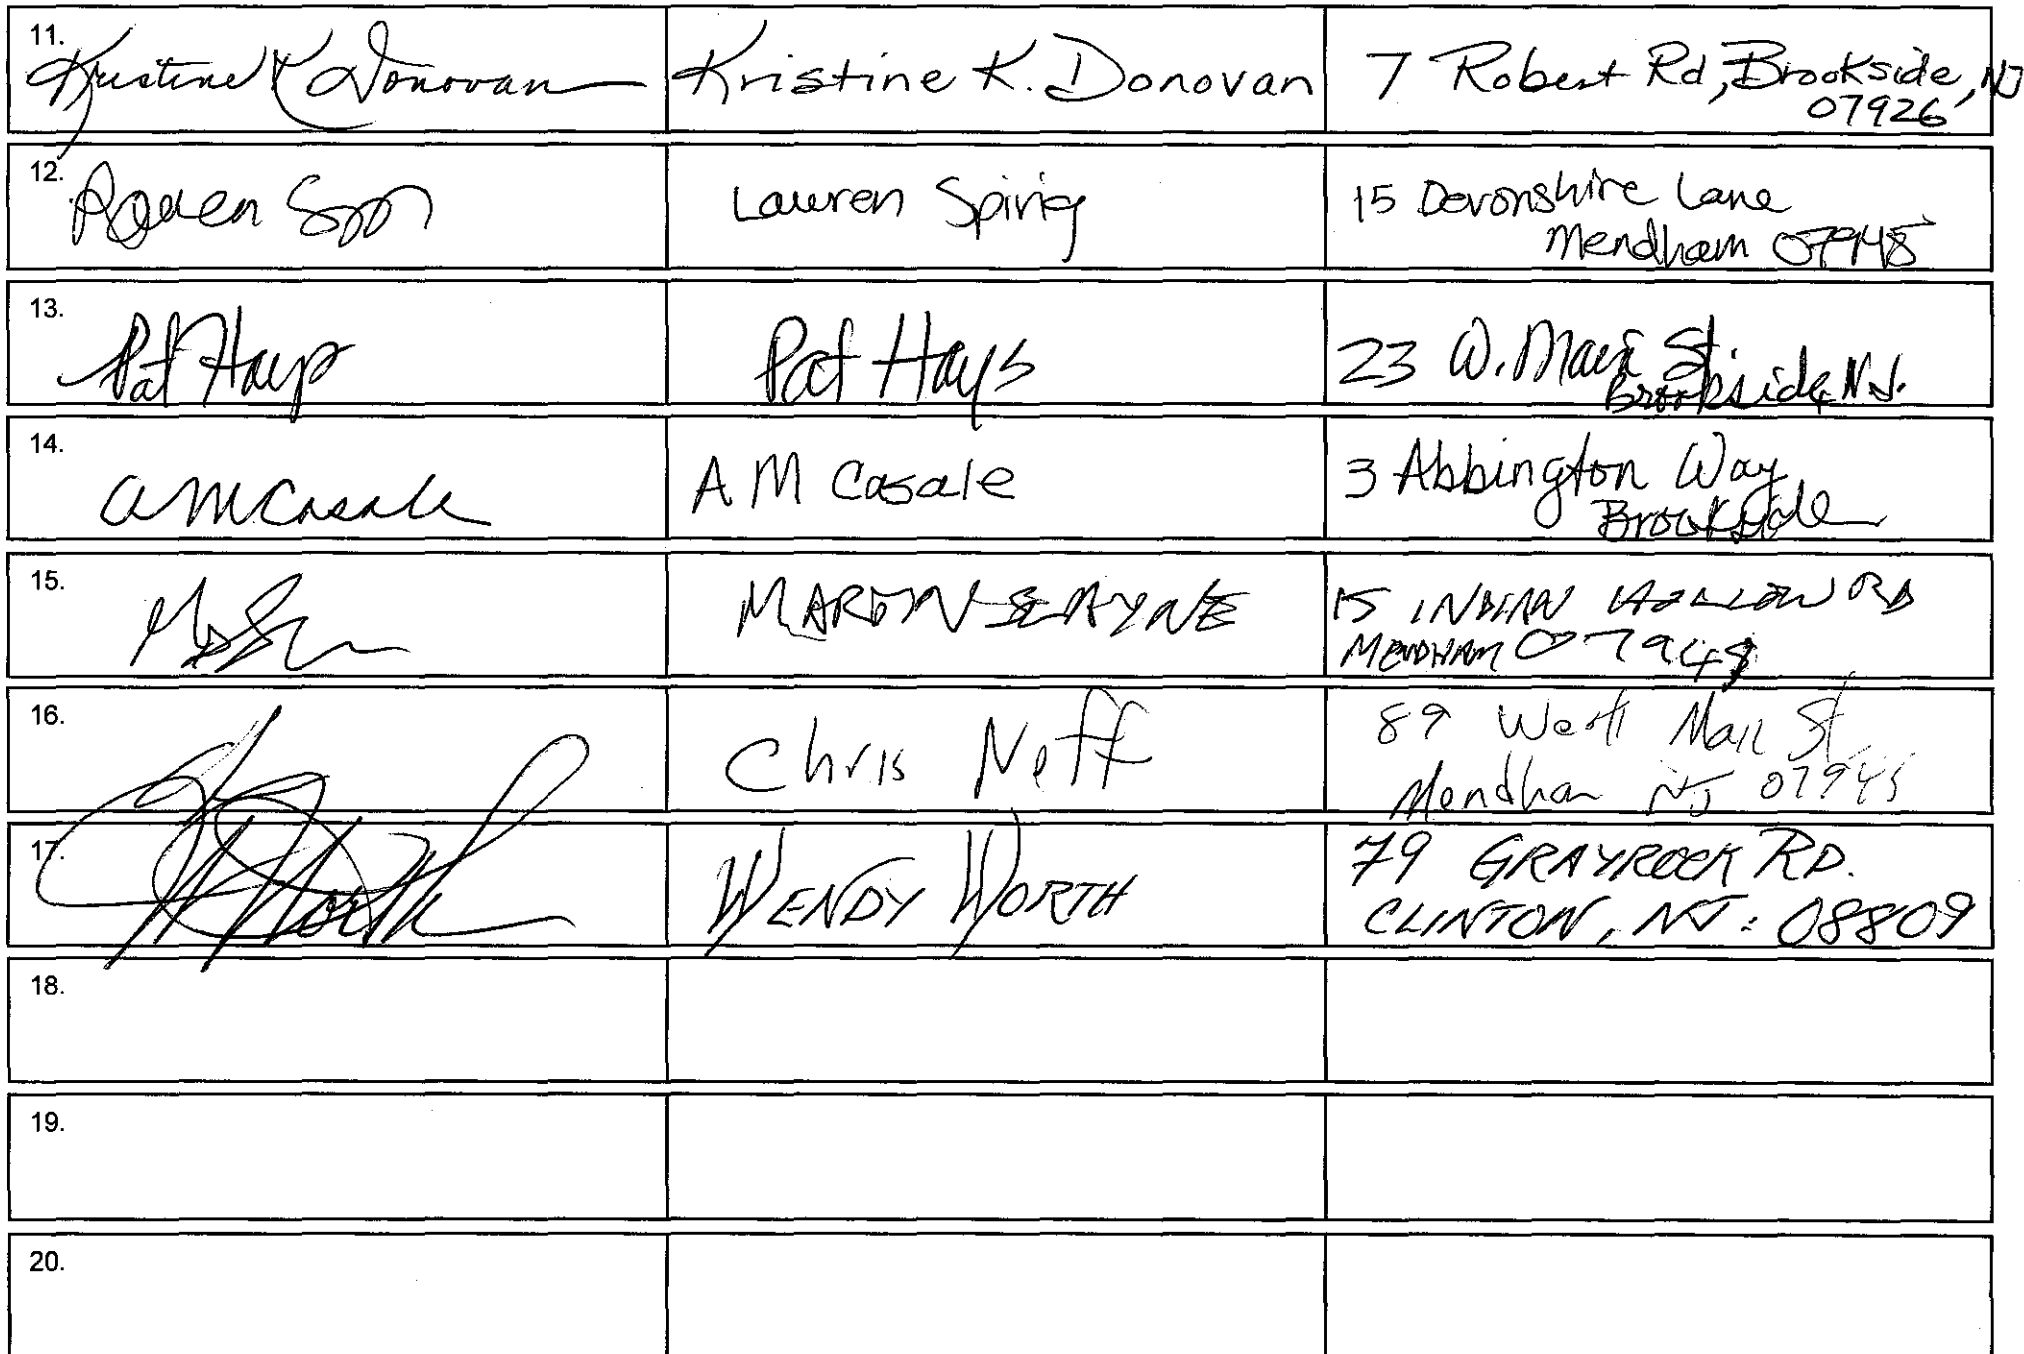 11.
Kristine K Donovan Kristine K. Donovan 7 Robert Rd, Brookside, NJ
07926
12.
Lauren Spirig 15 Devonshire Lane
Mendham 07945
13.
Pat Hays Pat Hays 23 W. Main St.
Brookside, N.J.
14.
A M Casale A M Casale 3 Abbington Way
Brookside
15.
15 INDIAN HOLLOW RD
MENDHAM 07945
16.
Chris Neff 89 West Main St
Mendham NJ 07945
17.
W Worth WENDY WORTH 79 GRAYROCK RD.
CLINTON, NJ: 08809
18.
19.
20.